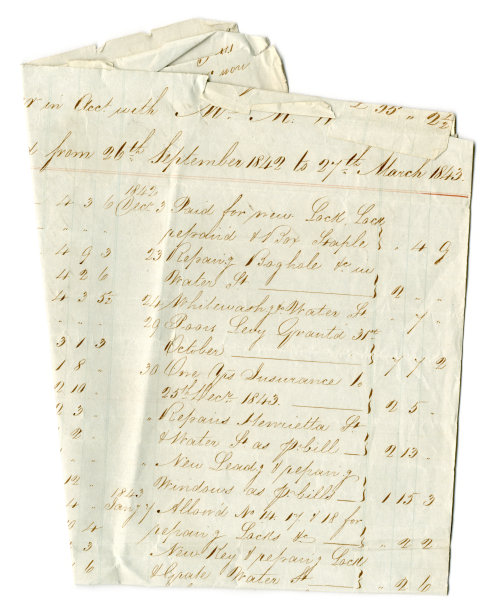 £ 35 " 2½
r in Acct with Mr. M.
from 26th September 1842 to 27th March 1843.
1842
4 3 6 Decr 3 Paid for new Lock, Lock
repaird & Box Staple } " 4 9
4 9 3 23 Repairg Boghole &c in
4 2 6 Water St } 2 " "
4 3 5½ 24 Whitewashg Water St " 7 "
29 Poors Levy Grantd 31st
3 1 3 October } 7 7 2
1 8 " 30 One Yrs Insurance to
2 10 25th Decr. 1843. } 2 5 "
2 3 " Repairs Henrietta St
" 2 & Water St as pr bill } 2 13 "
" " " New Leadg & repairg
12 Windows as pr bills } 1 15 3
1843
4 " Jany 7 Allowd No 14. 17. & 18 for
4 repairg Locks &c } " 2 2
3 " New Key & repairg Lock
6 & Grate Water St } " 2 6